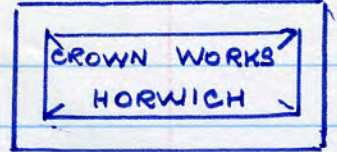 CROWN WORKS
HORWICH